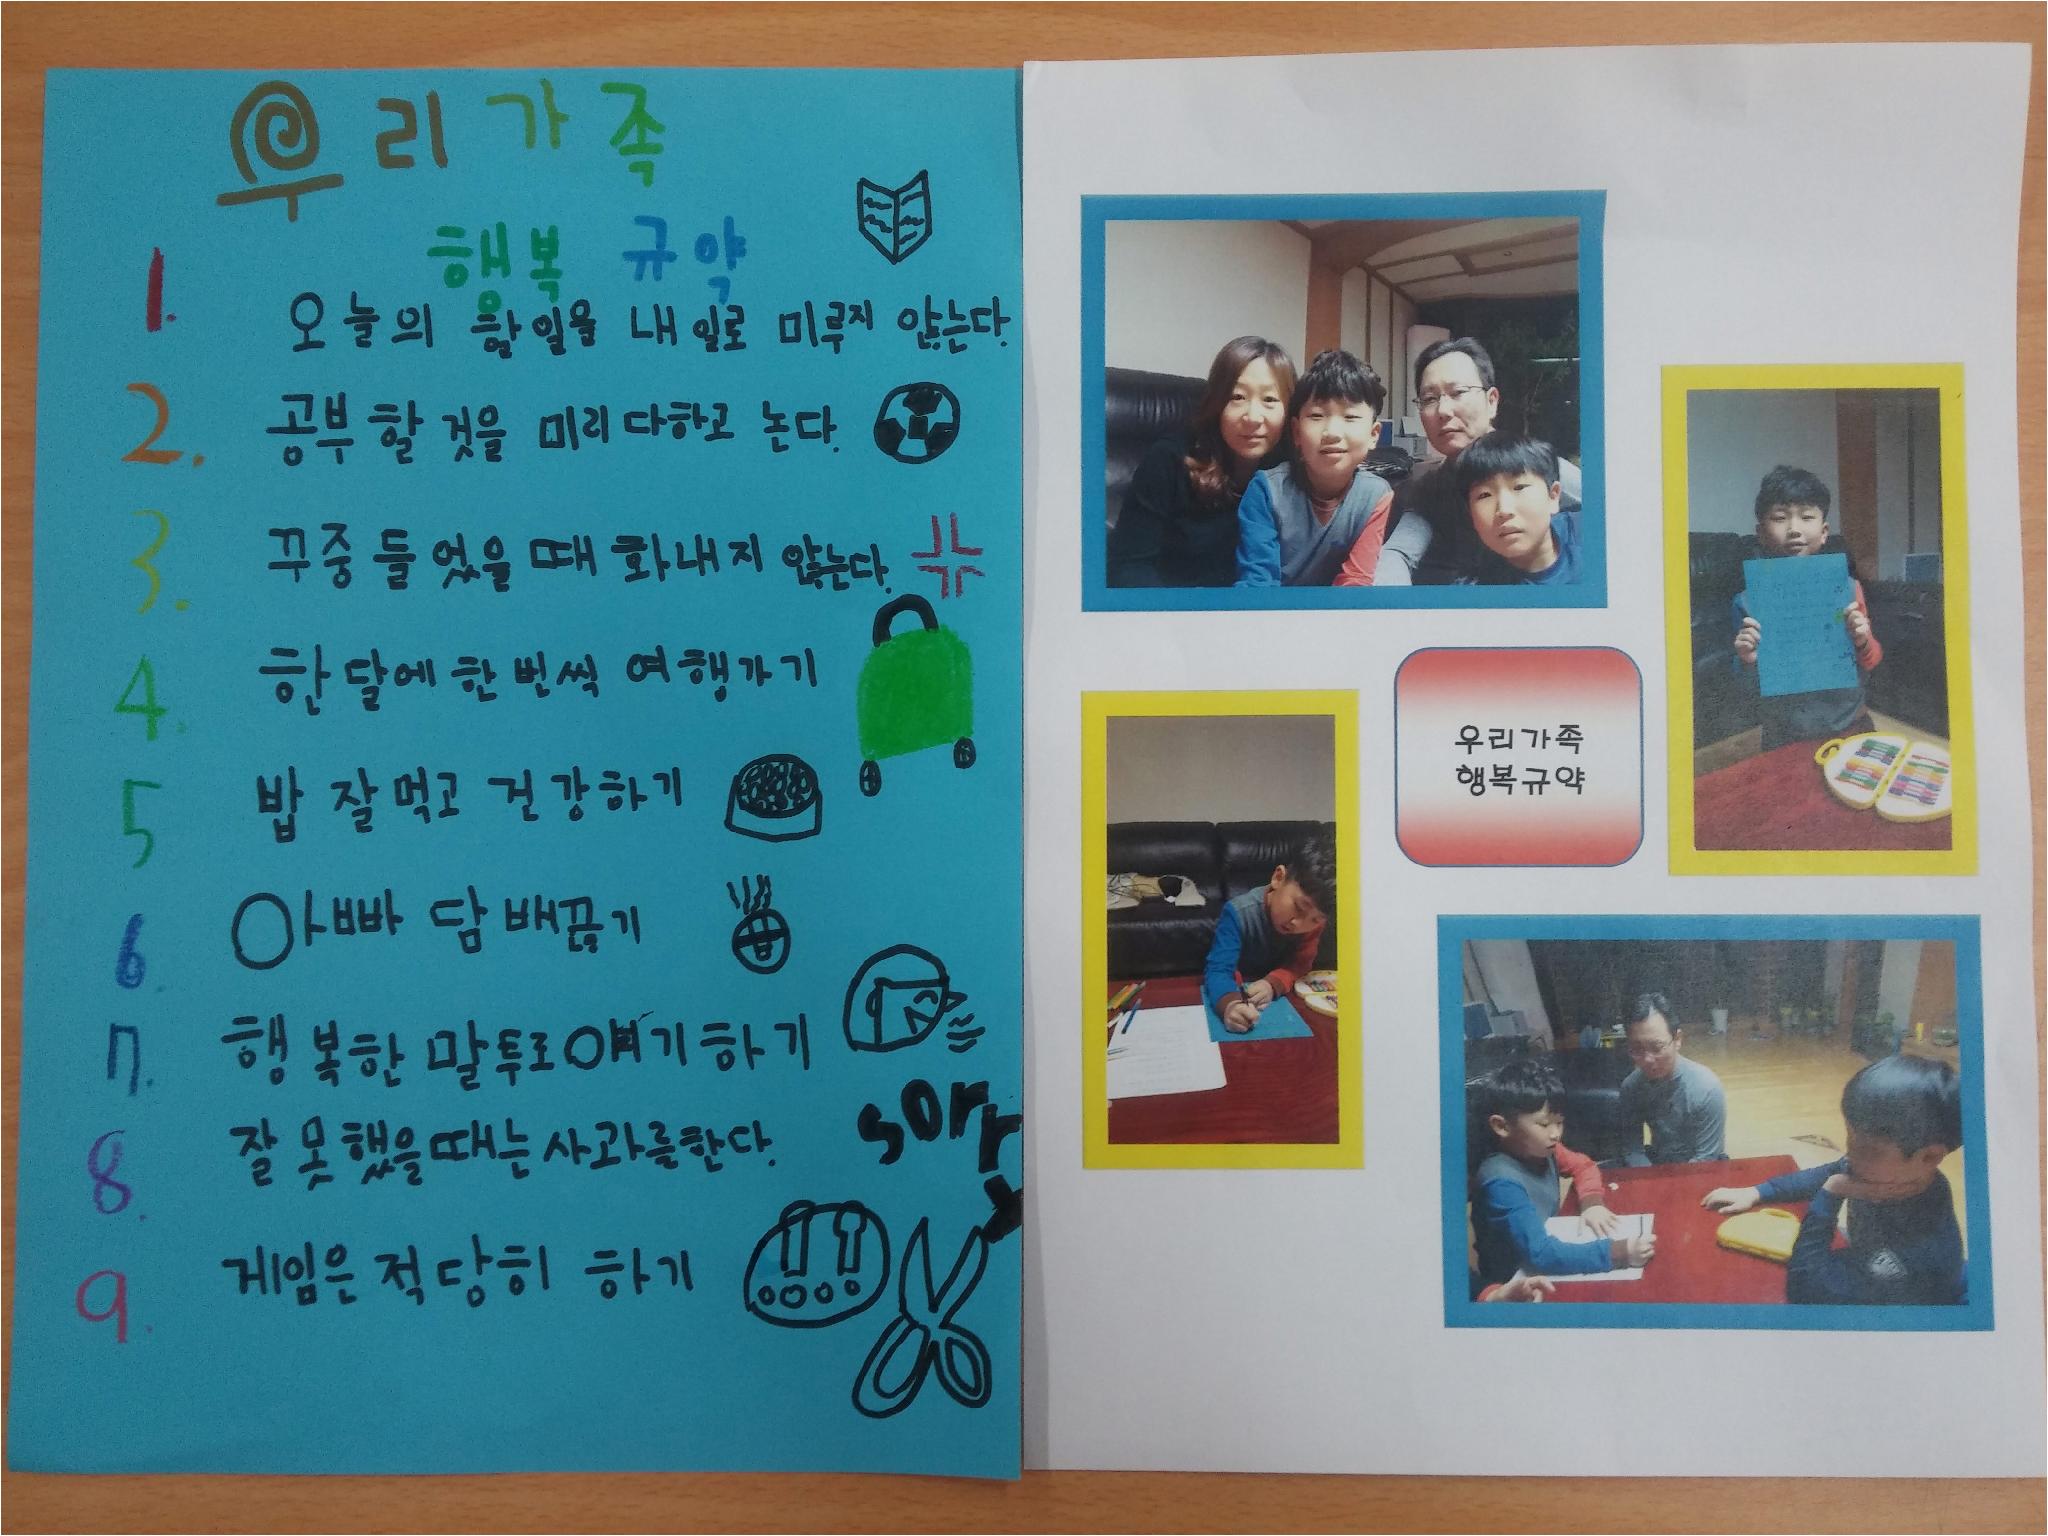 우리가족
행복 규약
1. 오늘의 할일을 내일로 미루지 않는다.
2. 공부 할 것을 미리 다하고 논다.
3. 꾸중 들었을 때 화내지 않는다.
4. 한 달에 한 번씩 여행가기
5 밥 잘 먹고 건강하기
6. 아빠 담배끊기
7. 행복한 말투로 얘기하기
8. 잘못했을때는 사과를한다.
sorry
9. 게임은 적당히 하기
우리가족
행복규약